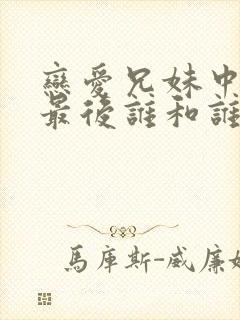 戀愛兄妹中
最後誰和誰
馬庫斯-威廉